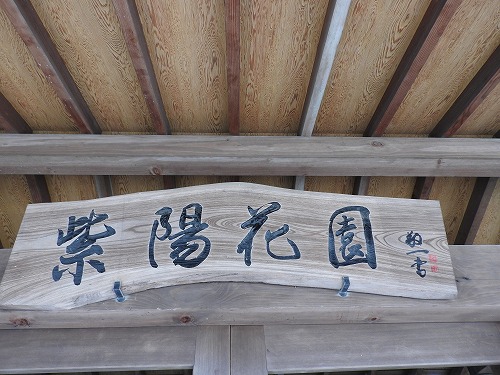 紫陽花園